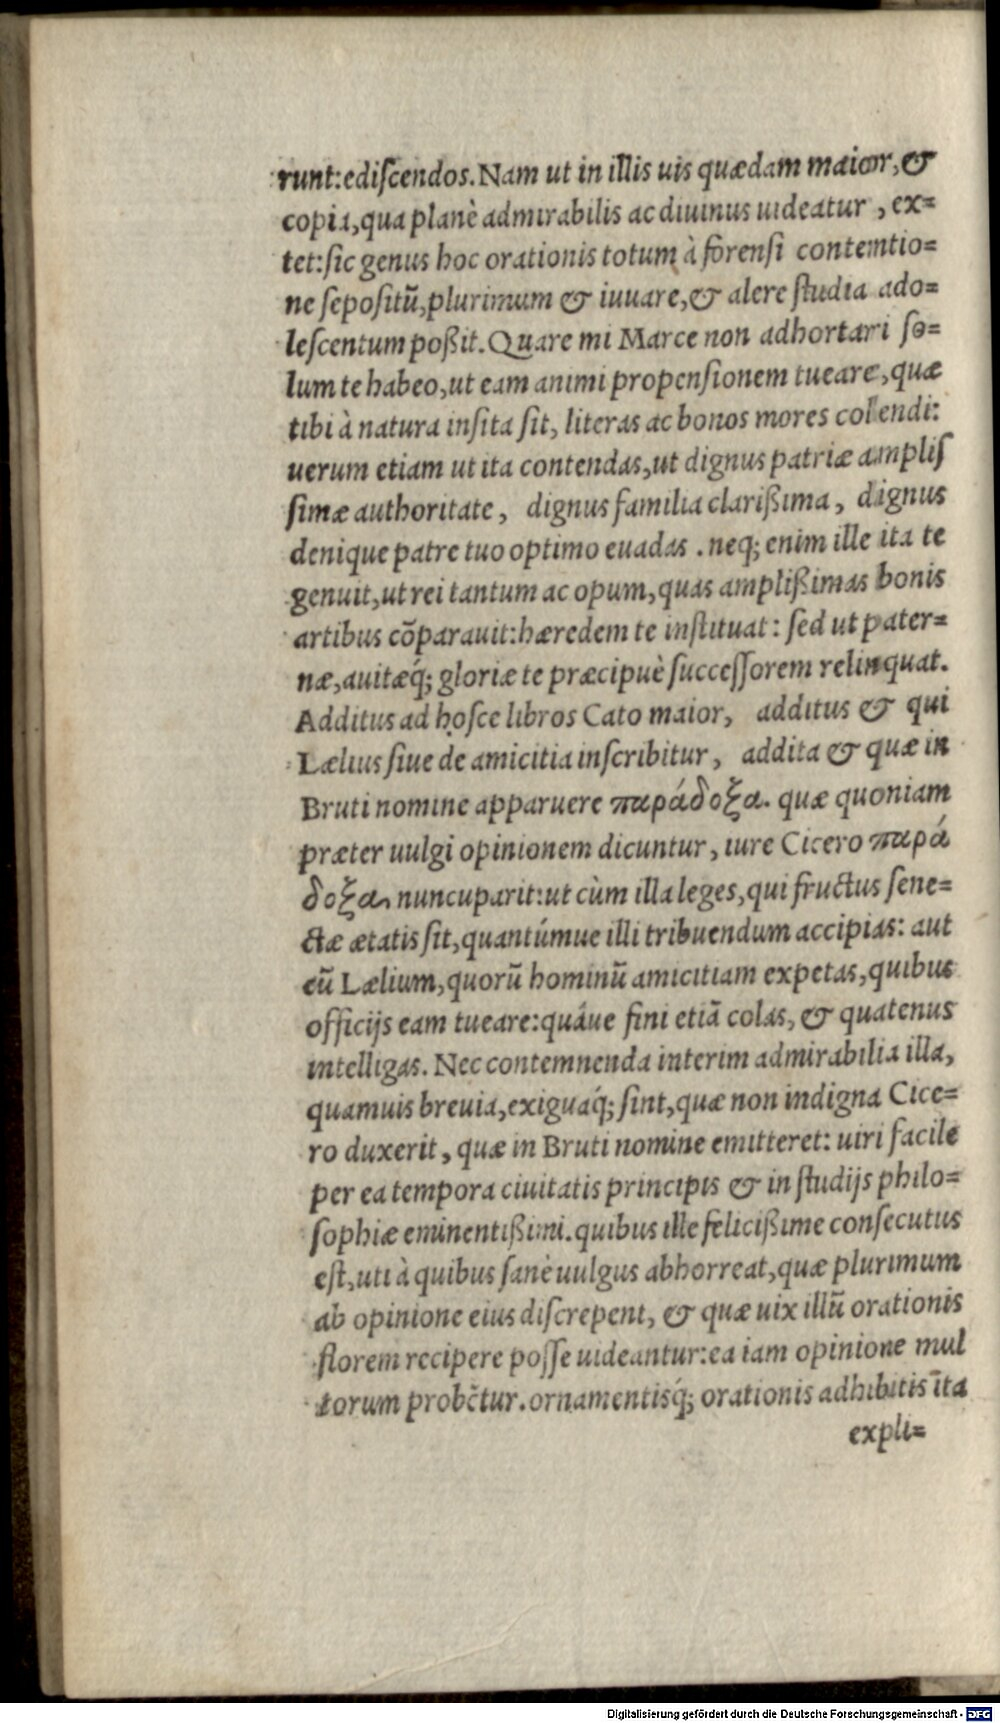 runt:ediſcendos. Nam ut in illis uis quædam maior, &
copia, qua planè admirabilis ac diuinus uideatur , ex=
tet: ſic genus hoc orationis totum à forenſi contentio=
ne ſepoſitū, plurimum & iuuare, & alere ſtudia ado=
leſcentum poßit. Quare mi Marce non adhortari ſo=
lum te habeo, ut eam animi propenſionem tueare, quæ
tibi à natura inſita ſit, literas ac bonos mores colendi:
uerum etiam ut ita contendas, ut dignus patriæ ampliſ
ſimæ authoritate , dignus familia clarißima , dignus
denique patre tuo optimo euadas . neq; enim ille ita te
genuit, ut rei tantum ac opum, quas amplißimas bonis
artibus cōparauit: hæredem te inſtituat : ſed ut pater=
næ, auitæq́; gloriæ te præcipuè ſucceſſorem relinquat.
Additus ad hoſce libros Cato maior, additus & qui
Lælius ſiue de amicitia inſcribitur , addita & quæ in
Bruti nomine apparuere παράδοξα. quæ quoniam
præter uulgi opinionem dicuntur , iure Cicero παρά
δοξα nuncuparit: ut cùm illa leges, qui fructus ſene=
ctæ ætatis ſit, quantúmue illi tribuendum accipias: aut
cū Lælium, quorū hominū amicitiam expetas, quibus
officijs eam tueare: quáue fini etiā colas, & quatenus
intelligas. Nec contemnenda interim admirabilia illa,
quamuis breuia, exiguaq́; ſint, quæ non indigna Cice=
ro duxerit , quæ in Bruti nomine emitteret: uiri facilè
per ea tempora ciuitatis principis & in ſtudijs philo=
ſophiæ eminentißimi. quibus ille felicißime conſecutus
eſt, uti à quibus ſanè uulgus abhorreat, quæ plurimum
ab opinione eius diſcrepent, & quæ uix illū orationis
florem recipere poſſe uideantur: ea iam opinione mul
torum probētur. ornamentisq́; orationis adhibitis ita
expli=
Digitalisierung gefördert durch die Deutsche Forschungsgemeinschaft - DFG